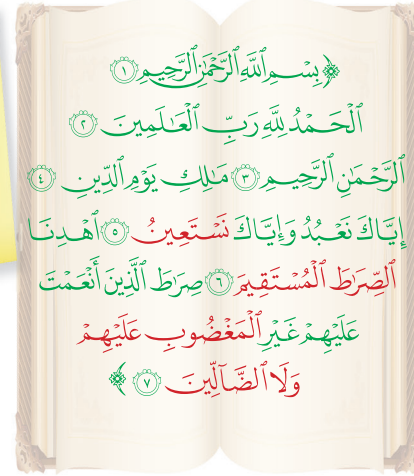 ﴿بِسْمِ ٱللَّهِ ٱلرَّحْمَٰنِ ٱلرَّحِيمِ ١
ٱلْحَمْدُ لِلَّهِ رَبِّ ٱلْعَٰلَمِينَ ٢
ٱلرَّحْمَٰنِ ٱلرَّحِيمِ ٣ مَٰلِكِ يَوْمِ ٱلدِّينِ ٤
إِيَّاكَ نَعْبُدُ وَإِيَّاكَ نَسْتَعِينُ ٥ ٱهْدِنَا
ٱلصِّرَٰطَ ٱلْمُسْتَقِيمَ ٦ صِرَٰطَ ٱلَّذِينَ أَنْعَمْتَ
عَلَيْهِمْ غَيْرِ ٱلْمَغْضُوبِ عَلَيْهِمْ
وَلَا ٱلضَّآلِّينَ ٧ ﴾